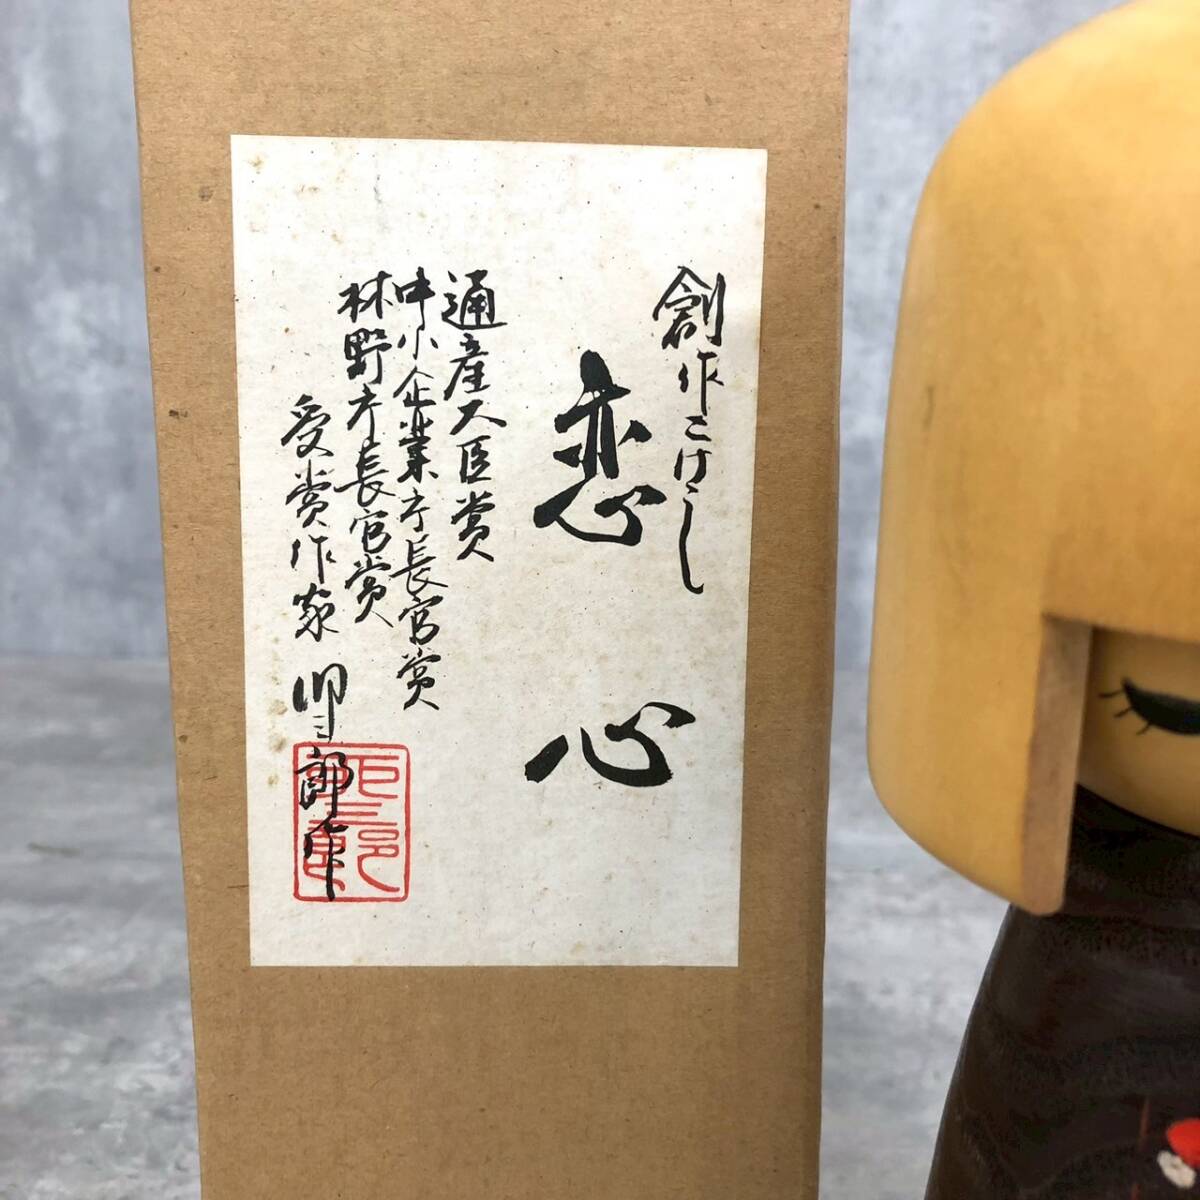 創作こけし
恋心
通産大臣賞
中小企業庁長官賞
林野庁長官賞
受賞作家